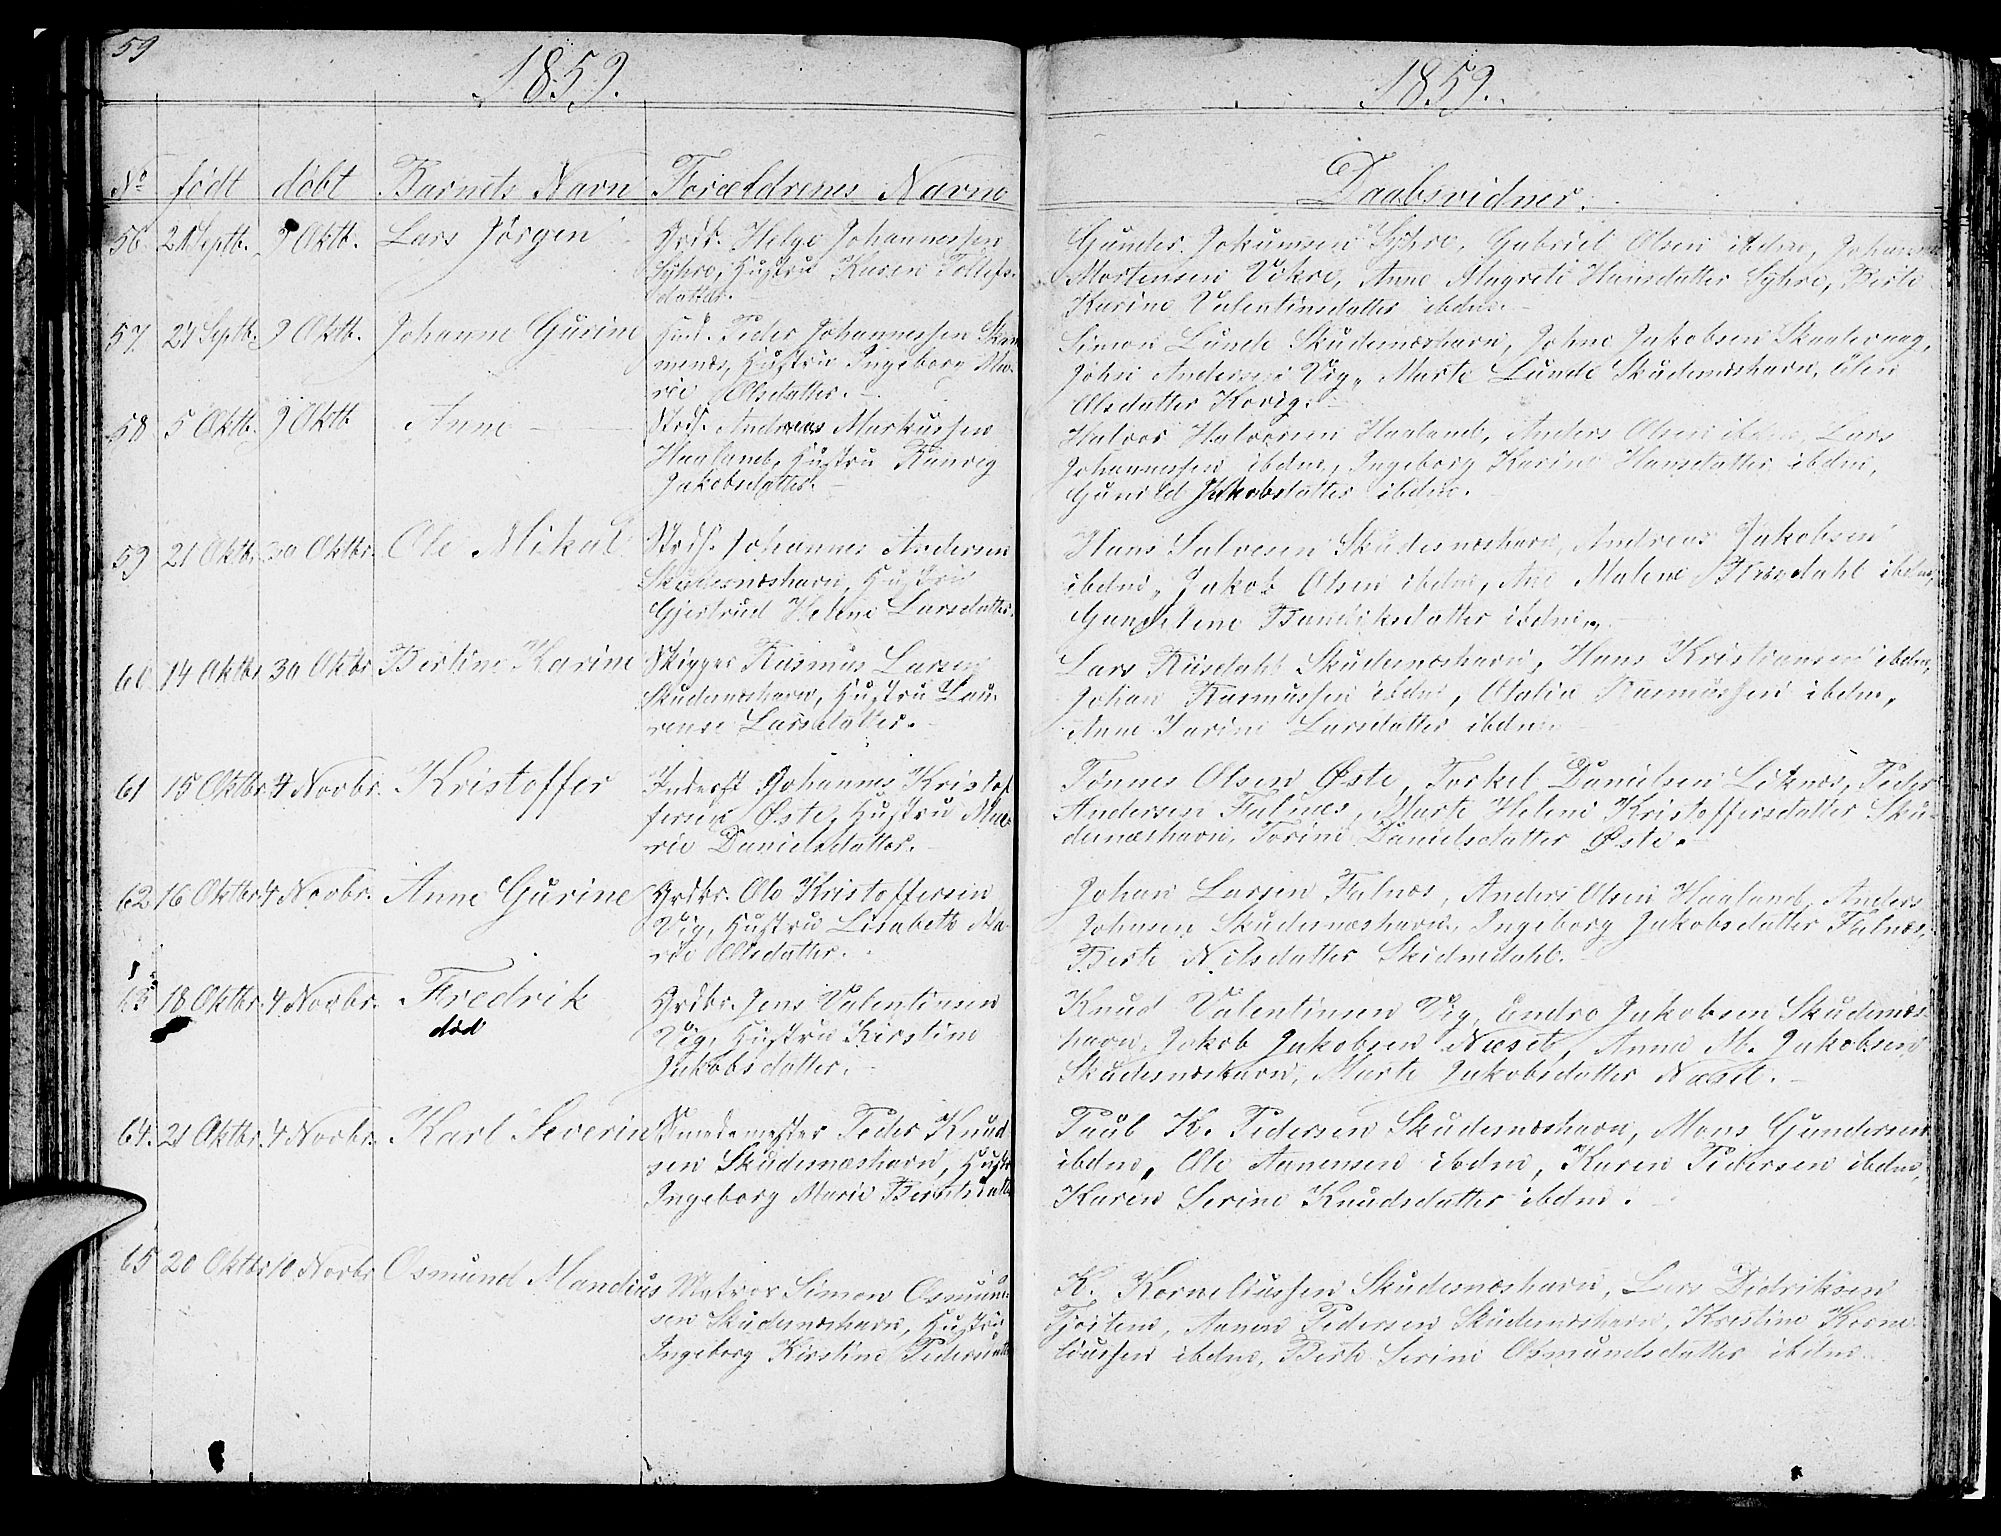 59
1859.
No født døbt Barnets Navn Forældrenes Navne
56 21 Septb. 9 Oktb. Lars Jørgen Grdr. Helge Johannessen
Syhre, Hustru Karen Tollefs-
datter.
57 24 Septb. 9 Oktb. Johanne Gurine Husd. Peder Johannessen
menes, Hustru Ingeborg Ma-
rie Olsdatter.
58 5 Oktb. 9 Oktb Anne Strds. Andreas Markussen
Haaland, Hustru Ranveig
Jakobsdatter.
59 21 Oktb. 30 Oktbr. Ole Mikal Strds. Johannes Andersen
Skudesnæshavn, Hustru
Gjertrud Helene Larsdatter.
60 14 Oktbr 30 Oktbr Bertine Karine Skipper Rasmus Larsen
Skudesnæshavn, Hustru Lau-
rense Larsdatter.
61 15 Oktbr. 4 Novbr. Kristoffer Inderst Johannes Kristof
fersen Øste, Hustru Ma-
rie Danielsdatter.
62 16 Oktbr. 4 Novbr. Anne Gurine Grdbr. Ole Kristoffersen
Vig, Hustru Lisabeth Ma-
rie Olsdatter.
63 18 Oktbr. 4 Novbr. Fredrik Grdbr. Jens Valentinsen
død Vig, Hustru Kirstine
Jakobsdatter.
64. 21 Oktbr. 4 Novbr. Karl Severin Smedemester Peder Knud
sen Skudesnæshavn, Hustr
Ingeborg Marie Berntsdatt
65 20 Oktbr 10 Novbr. Osmund Mandius Matros Simon Osmund-
sen Skudesnæshavn, Hustru
Ingeborg Kirstine Pedersdatt
1859.
Daabsvidner.
Gunder Jokumsen Syhre, Gabriel Olsen ibdm, Johannes
Mortensen Vikre, Anne Magrete Hansdatter Syhre, Berte
Karine Valentinsdatter ibdm.
Simon Lunde Skudesnæshavn, Johne Jakobsen Skaalevaag,
John Andersen Vig, Marte Lunde Skudesnæshavn, Elen
Olsdatter Hovig.
Halvor Halvorsen Haaland, Anders Olsen ibdm, Lars
Johannessen ibdm, Ingeborg Karine Hansdatter ibdm,
Gunild Jakobsdatter ibdm.
Hans Salvesen Skudesnæshavn, Andreas Jakobsen
ibdm, Jakob Olsen ibdm, Ane Malene Risdahl ibdm,
Bendiksdatter ibdm.
Lars Risdahl Skudesnæshavn, Hans Kristiansen ibdm,
Johan Rasmussen ibdm, Otalia Rasmussen ibdm,
Anne Karine Larsdatter ibdm.
Tønnes Olsen Øste, Torkel Danielsen Liknes, Peder
Andersen Falnes, Marte Helene Kristoffersdatter Sku-
desnæshavn, Torine Danielsdatter Øste.
Johan Larsen Falnæs, Anders Olsen Haaland, Anders
Johnsen Skudesnæshavn, Ingeborg Jakobsdatter Falnæs,
Berte Nilsdatter Skidnedahl.
Knud Valentinsen Vig, Endre Jakobsen Skudesnæs
havn, Jakob Jakobsen Næset, Anne M. Jakobsen
Skudesnæshavn, Marte Jakobsdatter Næset.
Paul K. Pedersen Skudesnæshavn, Mons Gundersen
ibdm, Ole Aanensen ibdm, Karen Pedersen ibdm,
Karen Serine Knudsdatter ibdm.
K. Korneliussen Skudesnæshavn, Lars Didriksen
Aanen Pedersen Skudesnæshavn, Kristine Korne
liussen ibdm, Berte Serine Osmundsdatter ibdm.